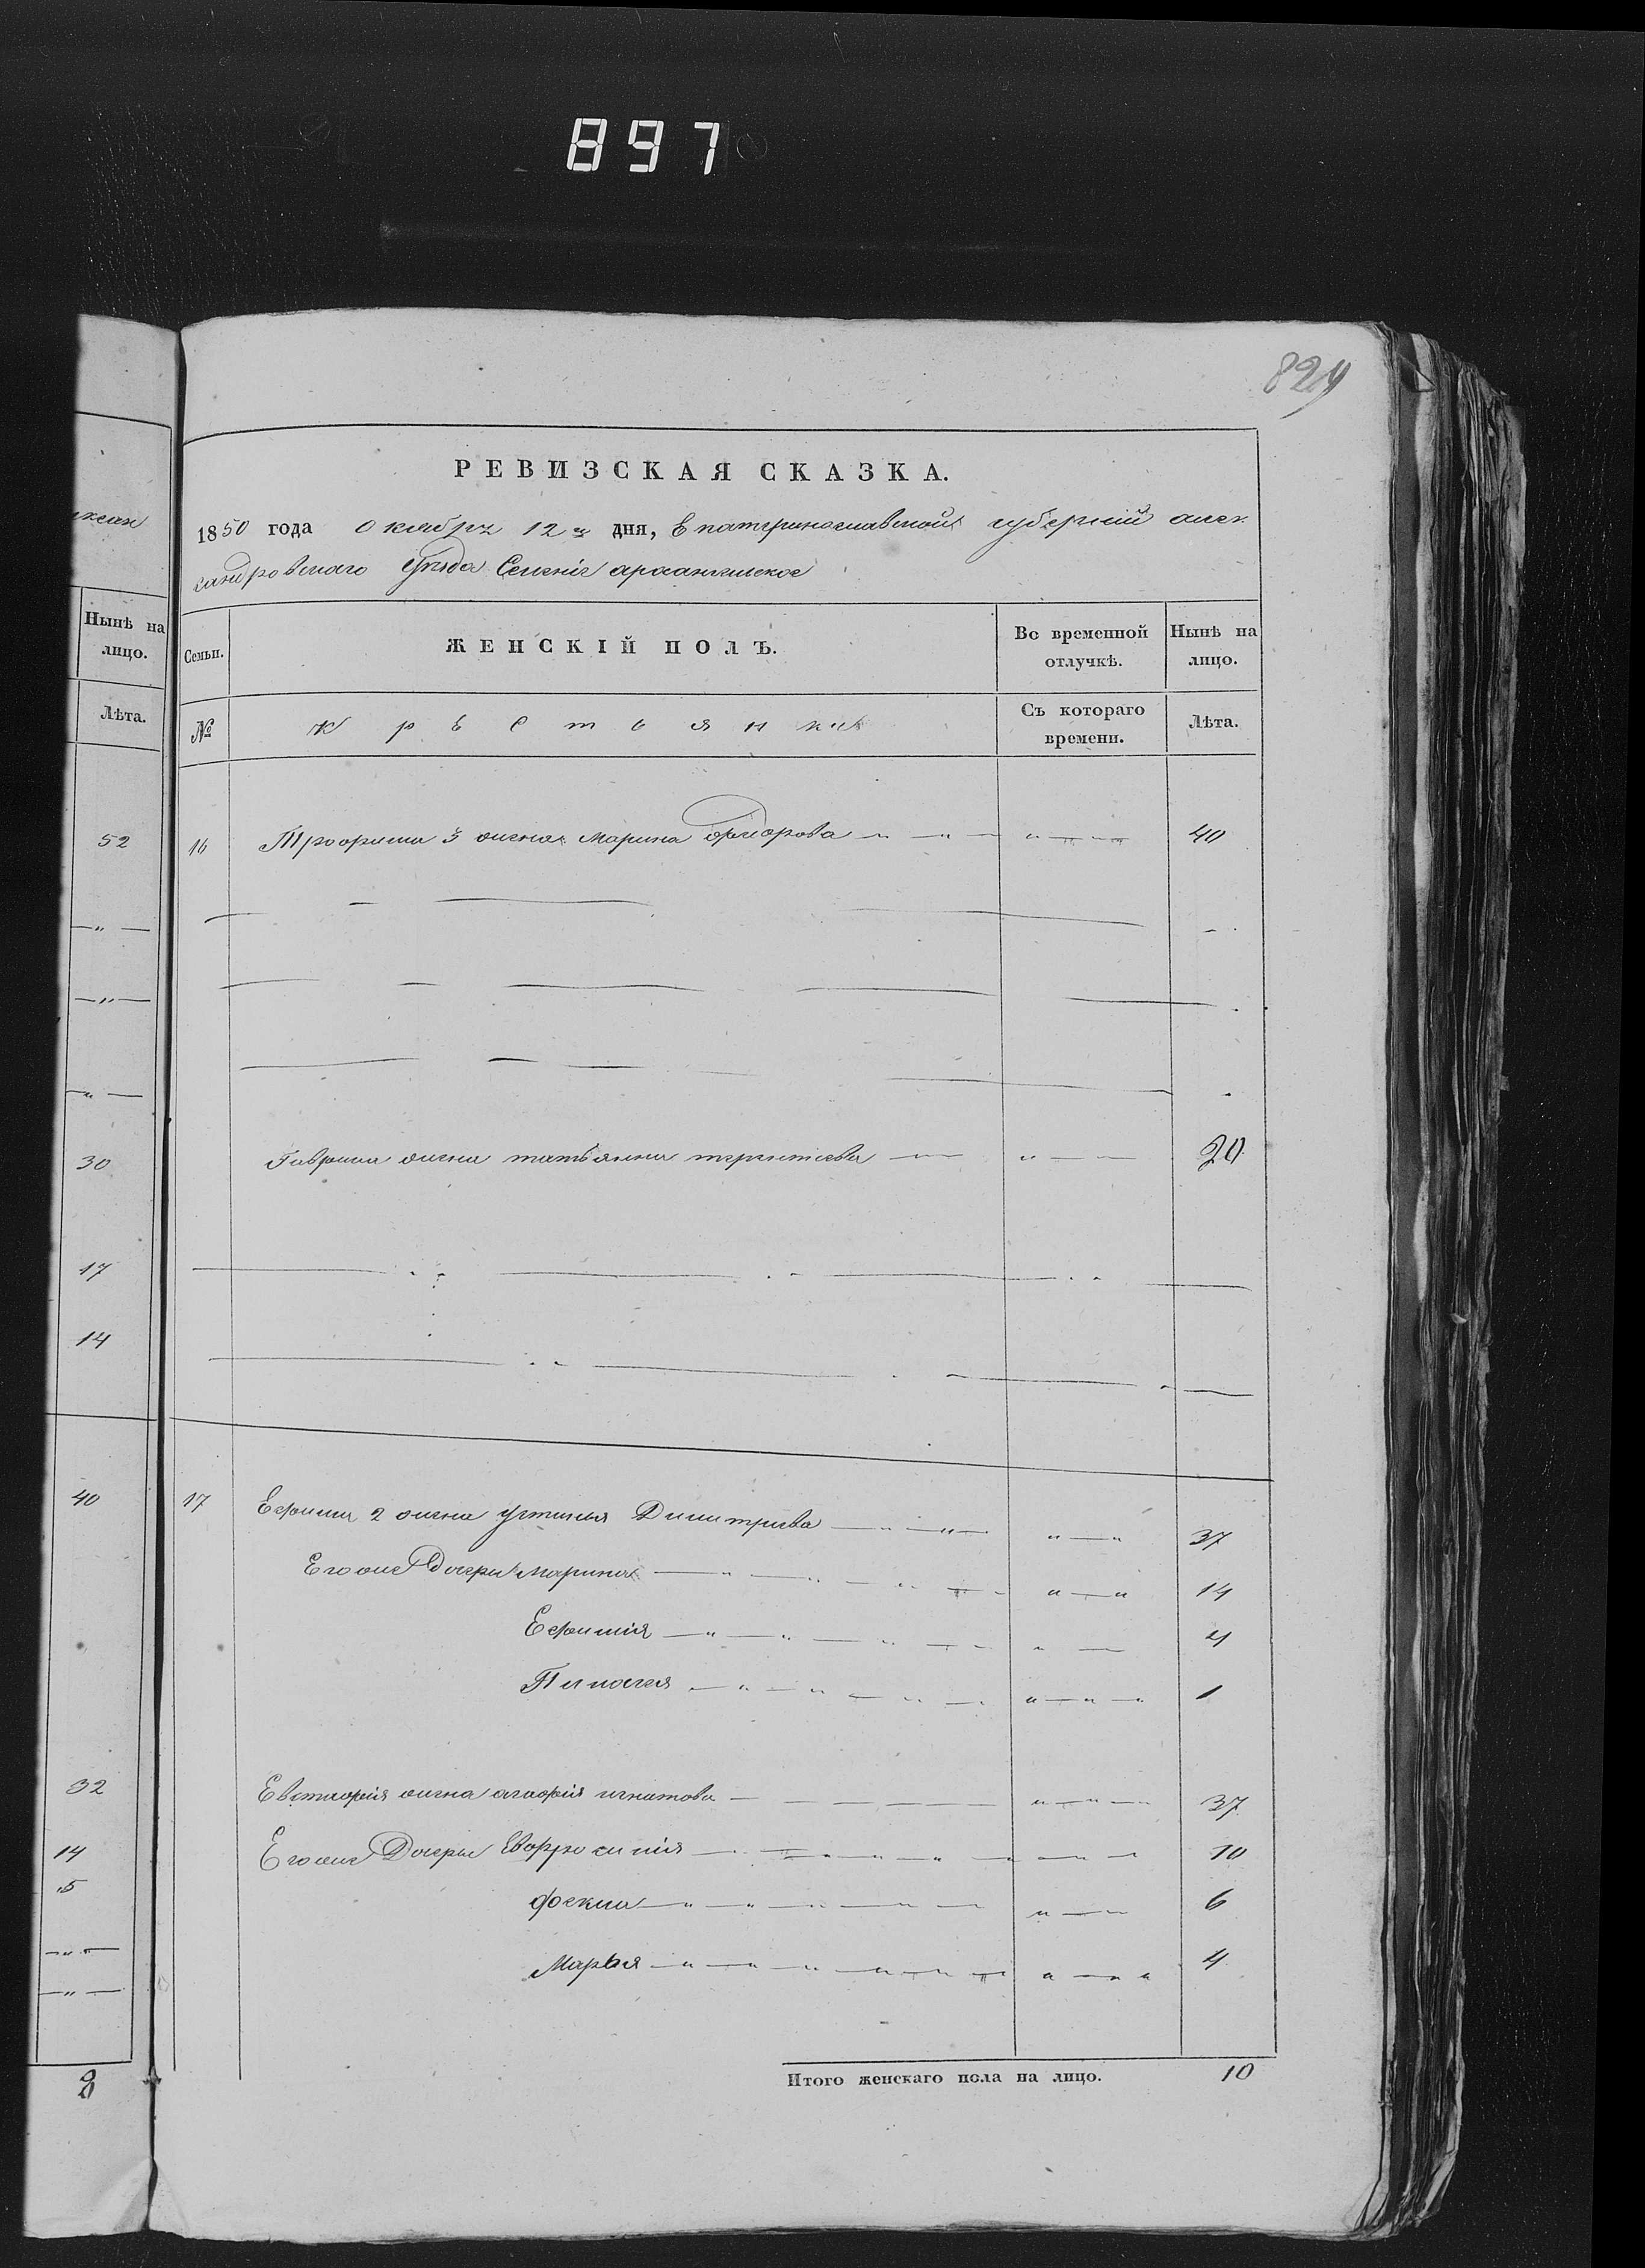 897
824
РЕВИЗСКАЯ СКАЗКА.
1850 года октября 12 дня, Екатеринославской губерній алек
сандровскаго уѣзда Селенія архангельское
Нынѣ на
лицо.
Лѣта.
52
30
17
14
40
32
14
5
8
Семьи.
ЖЕНСКІЙ ПОЛЪ.
Во временной
отлучкѣ.
Нынѣ на
лицо.
№
Крестьянкѣ
Съ котораго
времени.
Лѣта.
16 Трофима 3 жена Марина Фиодорова 40
Гаврила жена татьяна терентиева 20
17 Ефима 2 жена устинья Димитриева 37
Егоже Дочери Марина 14
Ефимія 4
Пилагея 1
Евстафія жена агафія игнатова 37
Егоже Дочери Евфросинія 10
Фекла 6
Марья 4
Итого женскаго пола на лицо. 10